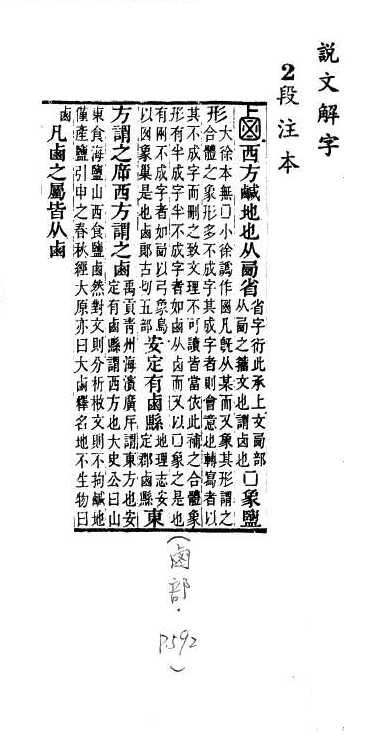 說文解字
2段注本
西方鹹地也从卥省省字衍此承上文卥部从卥之籒文也謂卤也囗象鹽
形大徐本無囗小徐譌作國凡旣从某而又象其形謂之合體之象形多不成字其成字者則會意也轉寫者以
其不成字而刪之致文理不可讀皆當依此補之合體象形有半成字半不成字者如鹵从卤而又以囗象之是也
有兩不成字者如卥以弓象鳥以囟象巢是也鹵郎古切五部安定有鹵縣地理志安定郡鹵縣東
方謂之㡿西方謂之鹵禹貢青州海濱廣㡿謂東方也安定有鹵縣謂西方也大史公曰山
東食海鹽山西食鹽鹵然對文則分析散文則不拘鹹地僅產鹽引申之春秋經大原亦曰大鹵釋名地不生物曰
鹵凡鹵之屬皆从鹵
(鹵部.P592)